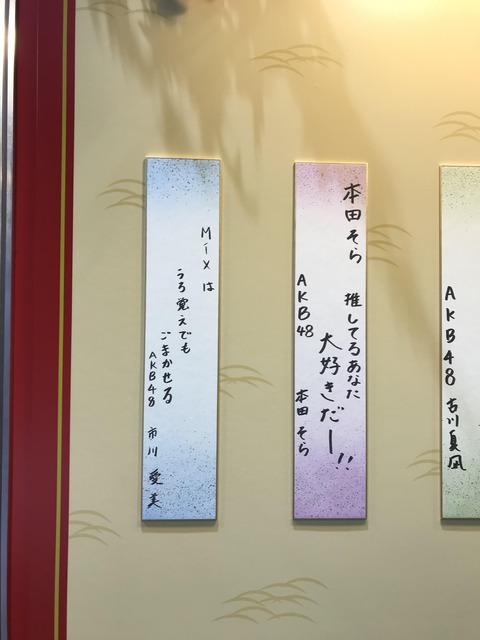 AKB48 古川夏凪
本田そら 推してるあなた
大好きだー!!
AKB48 本田そら
MIXは
うろ覚えでも
ごまかせる
AKB48 市川 愛美